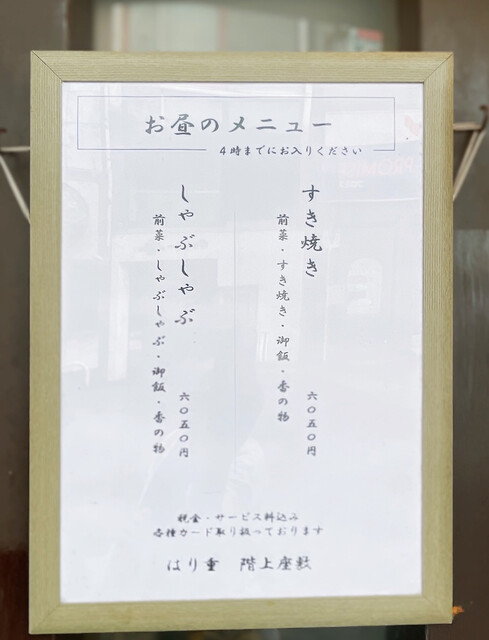 お昼のメニュー
4時までにお入りください
すき焼き
前菜・すき焼き・御飯・香の物
六〇五〇円
しゃぶしゃぶ
前菜・しゃぶしゃぶ・御飯・香の物
六〇五〇円
税金・サービス料込み
各種カード取り扱っております
はり重 階上座敷